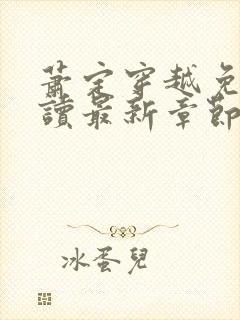 蕭定穿越免
讀最新章節
冰蛋兒